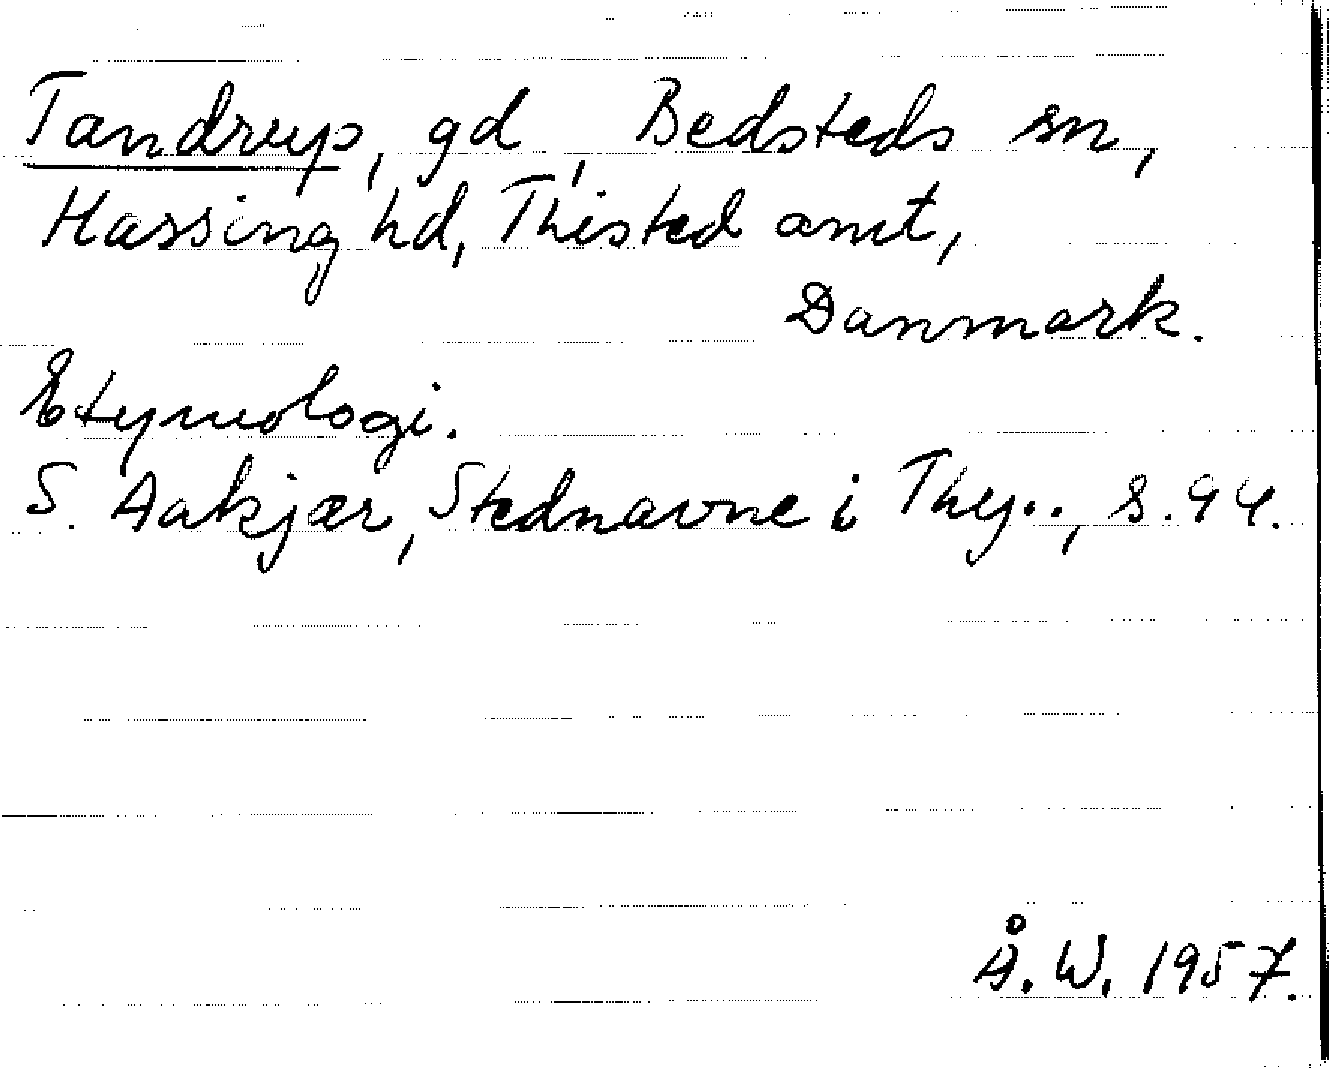 Tandrup, gd, Bedsteds sn,
Hassing hd, Thisted amt,
Danmark.
Etymologi.
S. Aakjær, Stednavne i Thy.., s. 94.
Å. W. 1957.